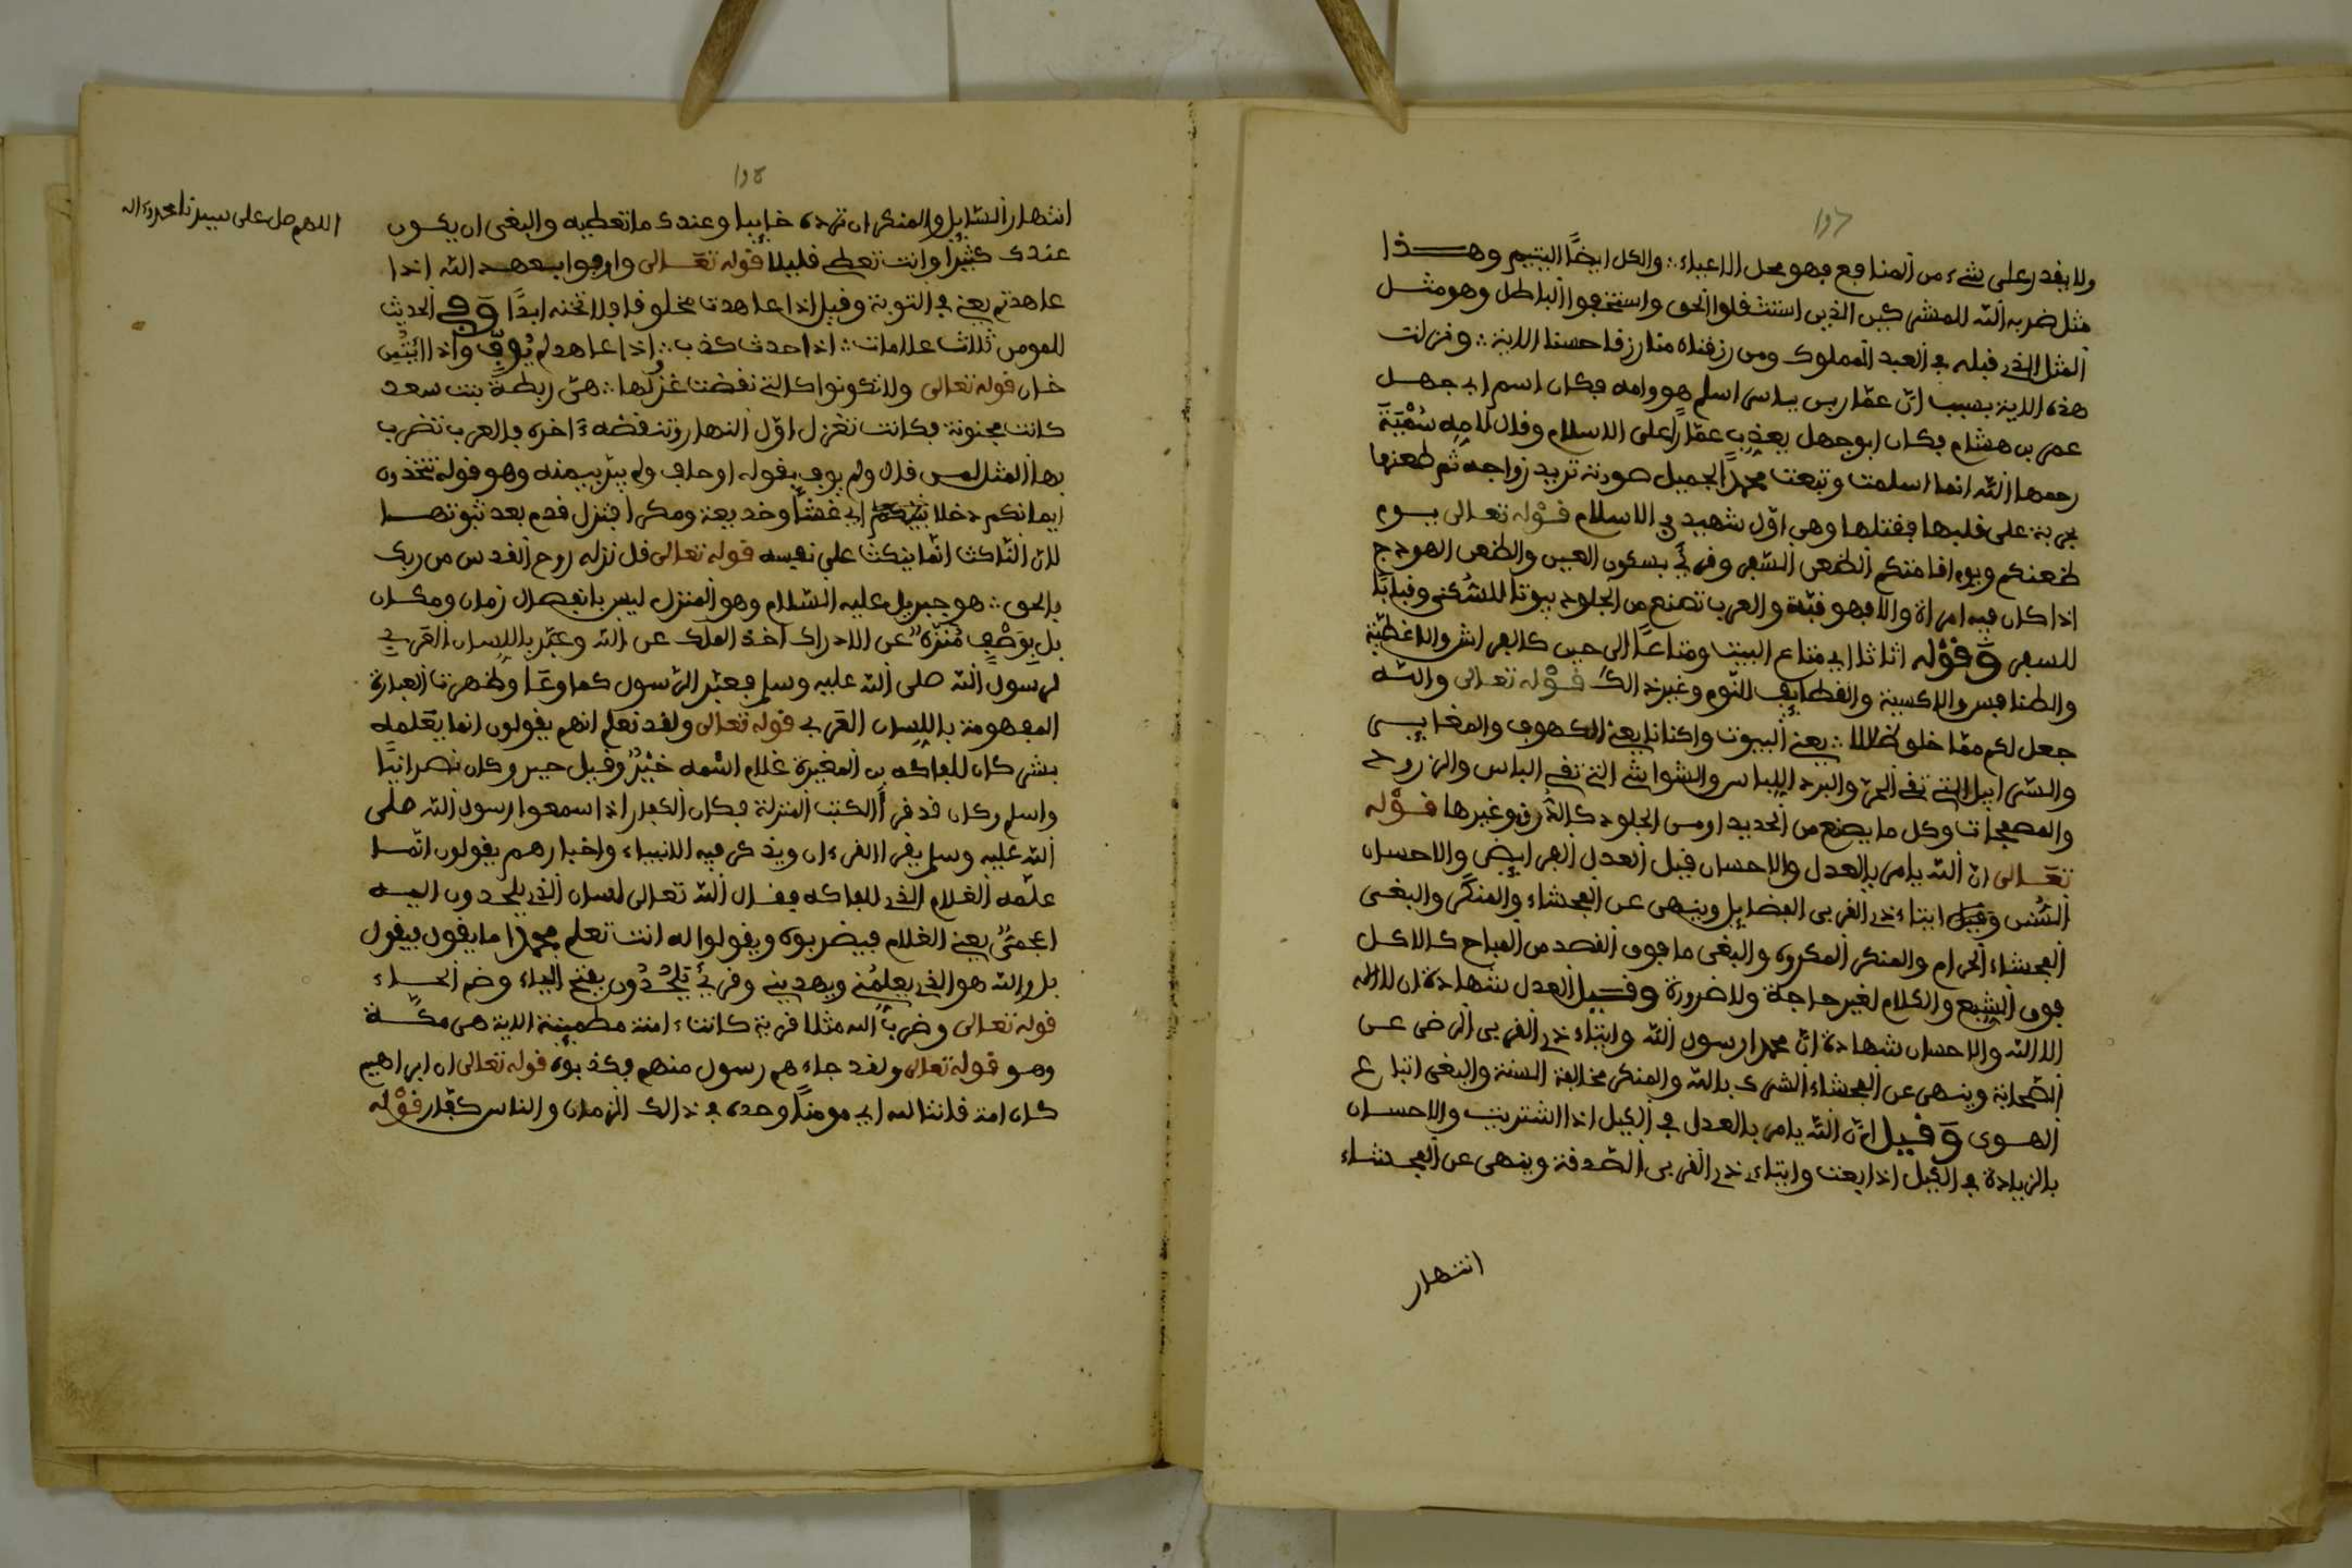 ولا يقدر على شيء من المنافع فهو محل الاعياء ∴ والكل ايضًا اليتيم وهــذا
مثل ضربه الله للمشركين الذين استثقلوا الحق واستخفوا الباطل وهو مثــل
المثل الذي قبله في العبد المملوك ومن رزقناه منا رزقا حسنا الاية ∴ ونزلت
هذه الاية بسبب انّ عمّار بن ياسر اسلم هو وامه فكان اسم ابي جهــل
عمر بن هشام فكان ابو جهل يعذب عمّارًا على الاسلام وقال لامه سُمَيّة
رحمها الله انما اسلمت وتبعت محمدًا لجميل صورته تريد زواجه ثم طعنها
بحربة على قلبها فقتلها وهي اوّل شهيد في الاسلام قوْله تعالى يــوم
ظعنكم ويوم اقامتكم الظعن السّفر وقرئ بسكون العين والظعن الهودج
اذا كان فيه امراة والا فهو قبّة والعرب تصنع من الجلود بيوتا للسُّكنى وقبابًا
للسفر وَقوْله اثاثا اي متاع البيت ومتاعًا الى حين كالفراش والاغطيّة
والطنافس والاكسية والقطايف للنّوم وغير ذالك قوْله تعالى والله
جعل لكم ممّا خلق ظلالا ∴ يعني البيوت واكنانا يعني الكهوف والمغايــر
والسّرابيل التي تقي الحرّ والبرد اللباس والشواشي التي تقي الباس والزرود
والمصفحات وكل ما يصنع من الحديد او من الجلود كالدُّرق وغيرها قــوْله
تعَــالى انّ الله يامر بالعدل والاحسان قيل العدل الفرايض والاحسان
السُّنن وَقيل ايتاء ذي القربى الفضايل وينهى عن الفحشاء والمنكر والبغــى
الفحشاء الحرام والمنكر المكروه والبغى ما فوق القصد من المباح كالاكــل
فوق الشبع والكلام لغير حاجة ولا ضرورة وقــيل العدل شهادة ان لا اله
الا الله والاحسان شهادة انّ محمدا رسول الله وايتاء ذي القربى الرضى عــن
الصّحابة وينهى عن الفحشاء الشرك بالله والمنكر مخالفة السنة والبغى اتباع
الهــوى وَقيل انّ الله يامر بالعدل في الكيل اذا اشتريت والاحسان
بالزيادة في الكيل اذا بعت وايتاء ذي القربى الصّدقة وينهى عن الفحشاء
انتهار
انتهار السّايل والمنكر ان ترده خايبا وعندك ما تعطيه والبغى ان يكــون
عندك كثيرا وانت تعطي قليلا قوله تعَــالى واوفوا بعهــد الله اذا
عاهدتم يعني في التوبة وقيل اذا عاهدت مخلوقا فلا تخنه ابدًا وَفي الحديث
للمومن ثلاث علامات ∴ اذا حدث كذب ∴ واذا عاهد لم يُوفِّ واذا ائتُمِن
خان قوله تعالى ولا تكونوا كالتي نقضت غزلها ∴ هيّ ربطة بنت سعد
كانت مجنونة فكانت تغزل اوّل النهار وتنقضه ءاخره فالعرب تضرب
بها المثل لمن قال ولم يوف بقوله او حلف ولم يبرّ بيمينه وهو قوله تتخذون
ايمانكم دخلا بينكم اي غشّا وخديعة ومكرا فتزل قدم بعد ثبوتهــا
لانّ النّاكث انّما ينكث على نفسه قوله تعالى قل نزله روح القدس من ربك
بالحق ∴ هو جبريل عليه السّلام وهو المنزل ليس بانفصال زمان ومكــان
بل بوَصْفٍ مُنَزّهٍ عن الادراك اخذ الملك عن الله وعبّر باللسان العَربي
لرسول الله صلى الله عليه وسلم فعبّر الرّسول كما وعَا وظهرت العبارة
المفهومة باللسان العَربي قوله تعالى ولقد نعلم انهم يقولون انما يعَلمه
بشر كان للفاكه بن المغيرة غلام اسْمه خيْرٌ وقيل جبر وكان نصرانيًا
واسلم وكان قد قرأ الكتب المنزلة فكان الكفار اذا سمعوا رسول الله صلى
الله عليه وسلم يقرا القرءان ويذكر فيه الانبياء واخبارهم يقولون انّمــا
علّمه الغلام الذي للفاكه فقــال الله تعالى لسان الذي يلحدون اليــه
اعجميّ يعني الغلام فيضربوه ويقولوا له انت تعلم محمدا ما يقول فيقول
بل والله هو الذي يعلمُني ويهديني وقرئ يَلْحُدُون بفتح الياء وضم الحــاء
قوله تعالى وضرب الله مثلا قرية كانت ءامنة مطمينة الاية هي مكّــة
وهو قوله تعالى ولقد جاءهم رسول منهم فكذبوه قوله تعالى ان ابراهيم
كان امة قانتا لله اي مومنًا وحده في ذالك الزمان والناس كفّار قوْله
اللهم صل على سيدنا محمد وءاله